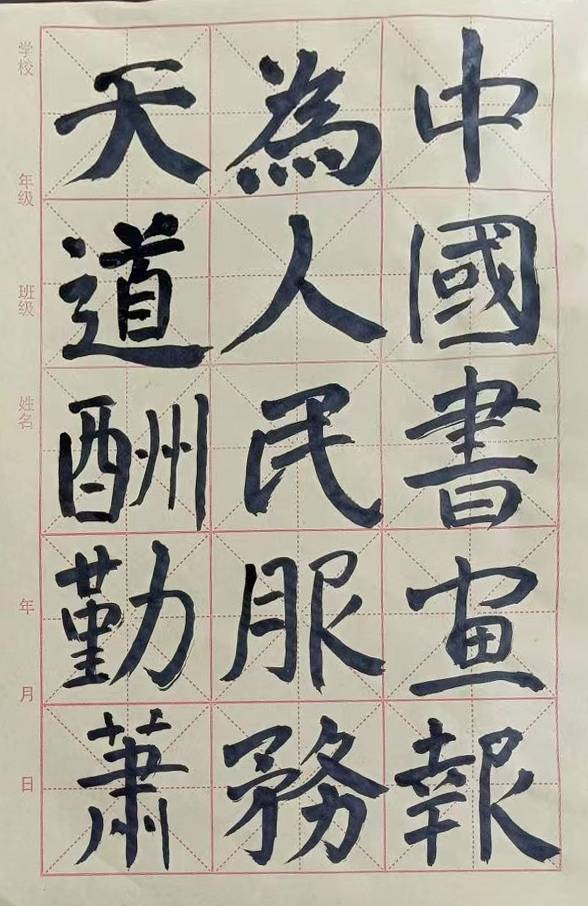 中國書畫報
為人民服務
天道酬勤蕭
学校 年级 班级 姓名 年 月 日